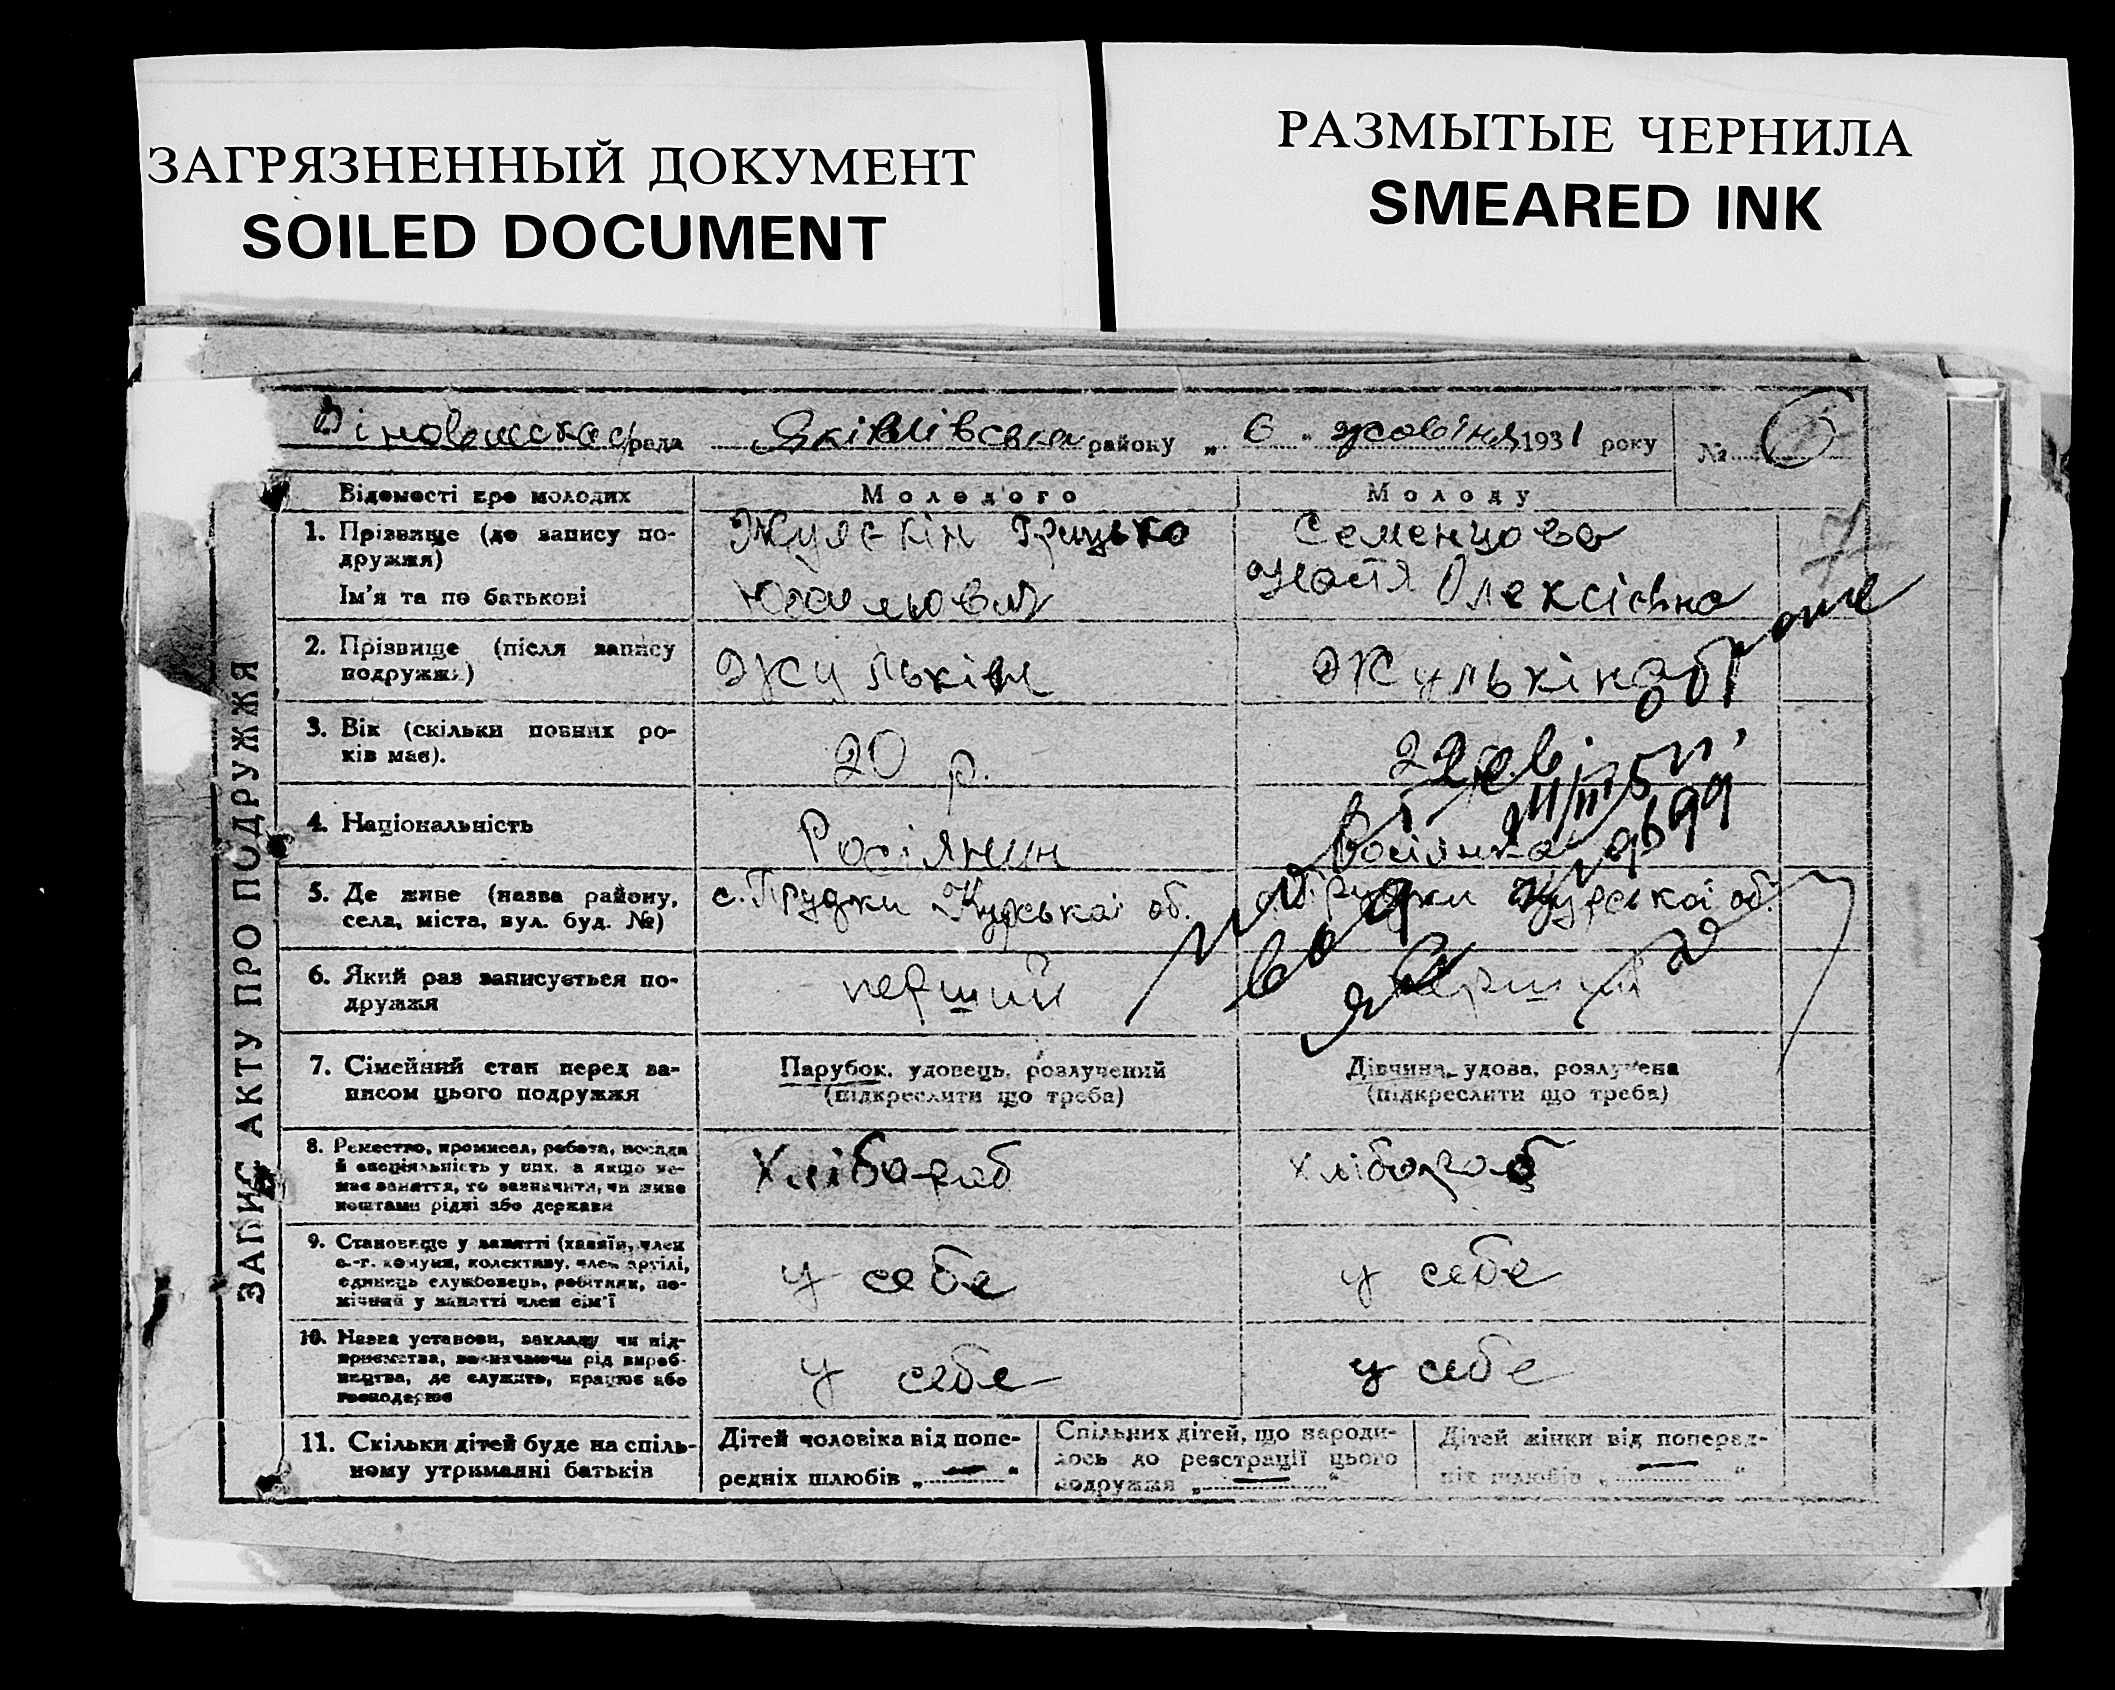 ЗАГРЯЗНЕННЫЙ ДОКУМЕНТ
SOILED DOCUMENT
РАЗМЫТЫЕ ЧЕРНИЛА
SMEARED INK
рада Якімівська району „ 6 " жовтня 1931 року №
ЗАПИС АКТУ ПРО ПОДРУЖЖЯ
Відомості про молодих Молодого Молоду
1. Прізвище (до запису по-
дружжя)
Ім'я та по батькові
Грицько
Семенцова
Настя Олексієвна
2. Прізвище (після запису
подружжя)
Жулькін Жулькіна
3. Вік (скільки повних ро-
ків має).
20 р. 22
4. Національність
Росіянин Росіянка
5. Де живе (назва району,
села, міста, вул. буд. №)
с. Прудки Курської об. Прудки Курської об.
6. Який раз записується по-
дружжя
перший перший
7. Сімейний стан перед за-
писом цього подружжя
Парубок, удовець, розлучений
(підкреслити що треба)
Дівчина, удова, розлучена
(підкреслити що треба)
8. Ремество, промисел, робота, посада
й спеціяльність у них, а якщо не-
має заняття, то зазначити, чи живе
коштами рідні або держави
Хлібороб хлібороб
9. Становище у занятті (хазяїн, член
с.-г. комуни, колективу, член артілі,
одинець службовець, робітник, по-
мічний у занятті член сім'ї
у себе у себе
10. Назва установи, закладу чи під-
приємства, зазначаючи рід вироб-
ництва, де служить, працює або
господарює
у себе у себе
11. Скільки дітей буде на спіль-
ному утриманні батьків
Дітей чоловіка від попе-
редніх шлюбів „ — "
Спільних дітей, що народи-
лось до реєстрації цього
подружжя „ — "
Дітей жінки від поперед-
ніх шлюбів „ — "